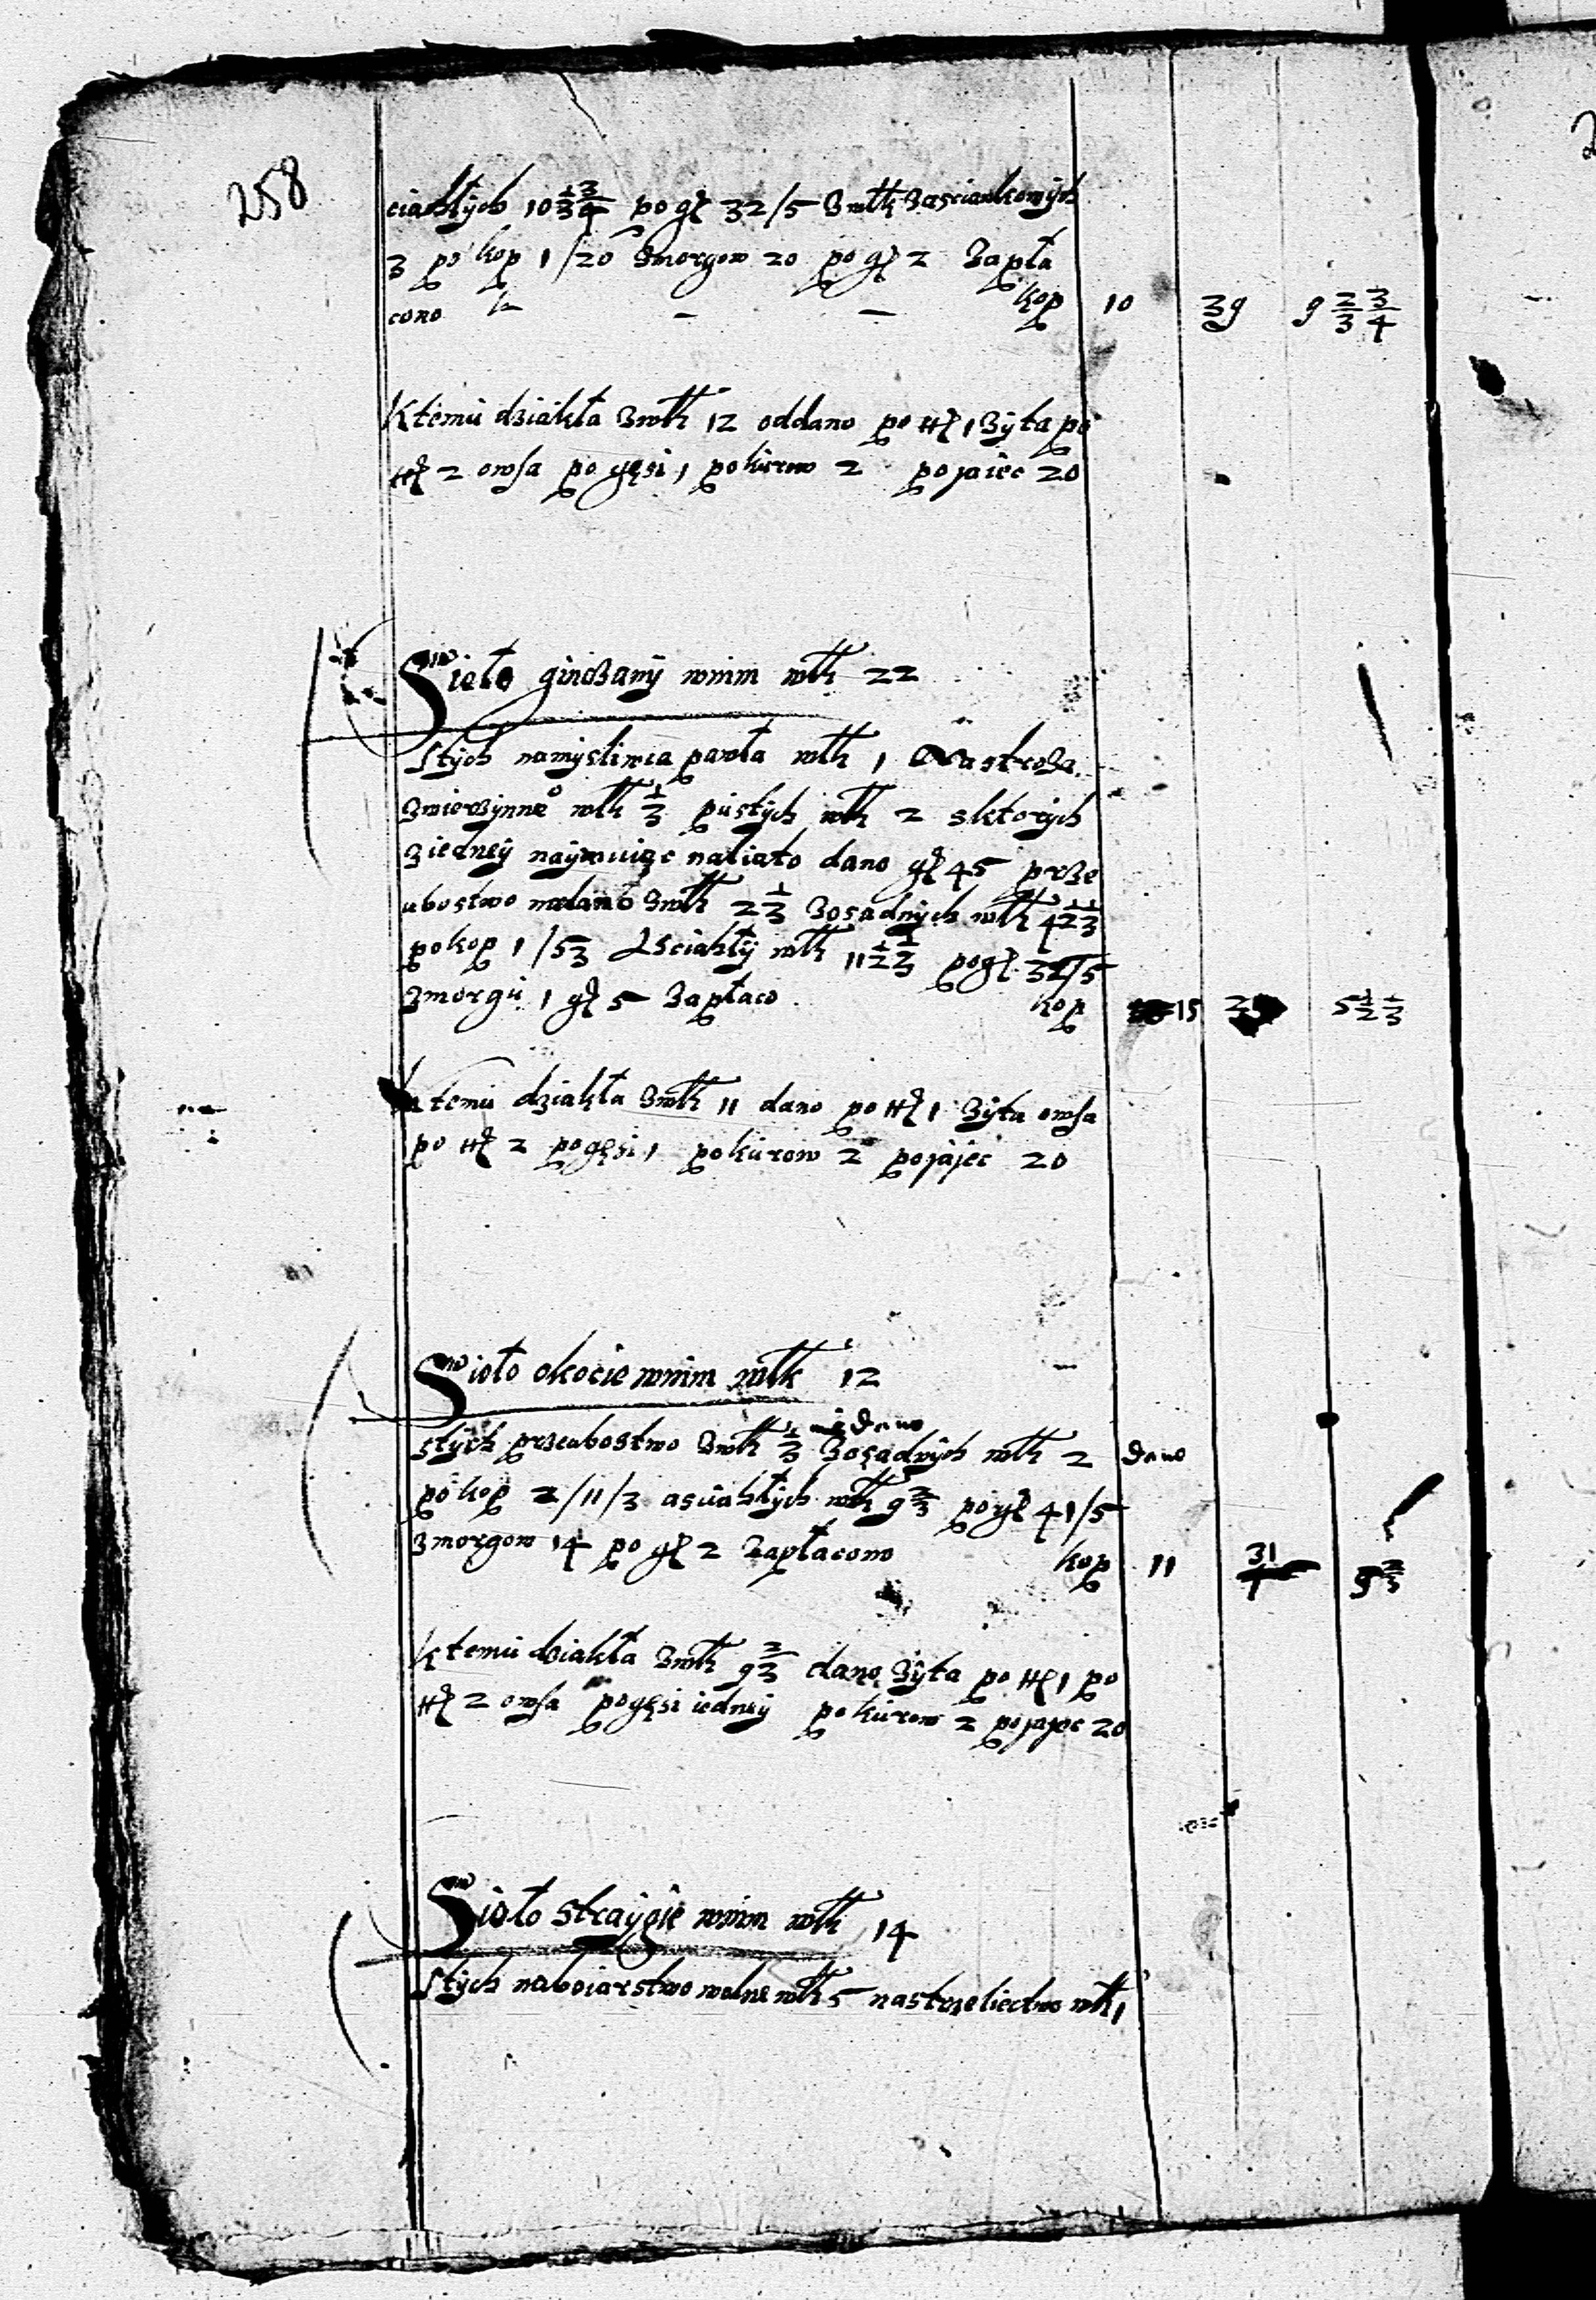 258
ciahłych 10 1/3 3/4 po gr 32/5 z włk zasciankowych
3 po kop 1/20 z morgow 20 po gr 2 zapła
cono kop 10 39 9 2/3 3/4
K temu dziakła z włk 12 oddano po 1 żyta po
2 owsa po gęsi 1 po kurow 2 po jaiec 20
Sioło ginczany w nim włk 22
Z tych na mysliwca pawła włk 1 na stroża
zwierzynne° włk 1/3 pustych włk 2 s ktorych
z iedney naymuiąc na liato dano gr 45 prze
ubostwo z włk 2 1/3 z osadnych włk 4 1/2 1/3
po kop 1/53 z sciahły włk 11 1/2 1/3 po gr 32/5
z morgu 1 gr 5 zapłaco kop 15 5 1/2 1/3
K temu dziakła z włk 11 dano po 1 żyta owsa
po 2 po gęsi 1 po kurow 2 po jajec 20
Sioło okocie w nim włk 12
s tych prze ubostwo z włk 1/3 nie dano z osadnych włk 2 dano
po kop 2/11/3 a sciahłych włk 9 2/3 po gr 41/5
z morgow 14 po gr 2 zapłacono kop 11 31 9 2/3
K temu dziakła z włk 9 2/3 dano żyta po 1 po
2 owsa po gęsi iedney po kurow 2 po jajec 20
Sioło straygie w nim włk 14
Z tych na boiarstwo wolne włk 5 na strzeliectwo włk 1